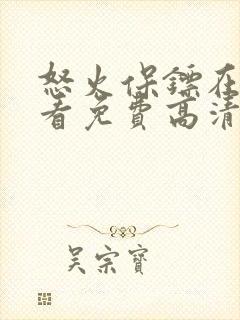 怒火保镖在
看免费高清
吴宗宝